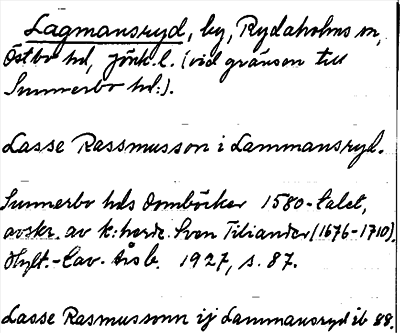 Lagmansryd, by, Rydaholms sn,
Östbo hd, Jönk. l. (vid gränsen till
Sunnerbo hd:).
Lasse Rassmusson i Lammansryd.
Sunnerbo hds domböcker 1580-talet,
avskr. av k:herde Sven Tiliander (1676-1710).
Hylt.-Cav. Årsb. 1927, s. 87.
Lasse Rasmussonn ij Lammansryd ib 88.